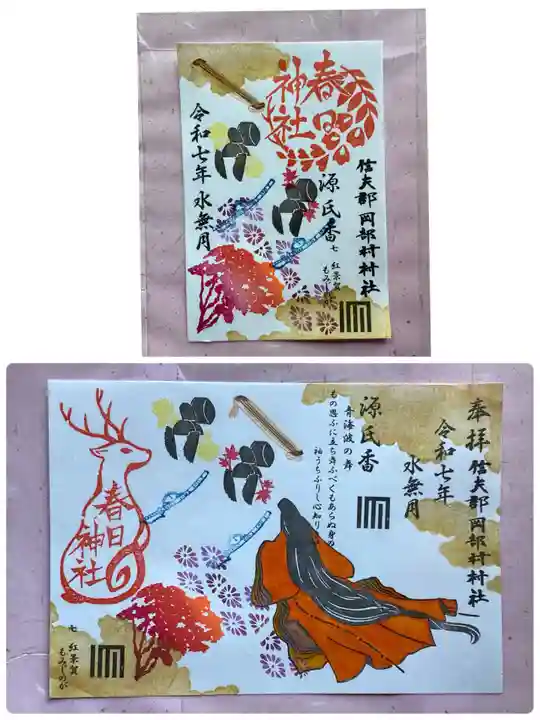 春日
神社
信夫郡岡部村村社
源氏香
七 紅葉賀
もみじのが
令和七年 水無月
奉拝 信夫郡岡部村村社
令和七年
水無月
源氏香
青海波の舞
もの思ふに立ち舞ふべくもあらぬ身の
袖うちふりし心知りきや
春日
神社
七 紅葉賀
もみじのが